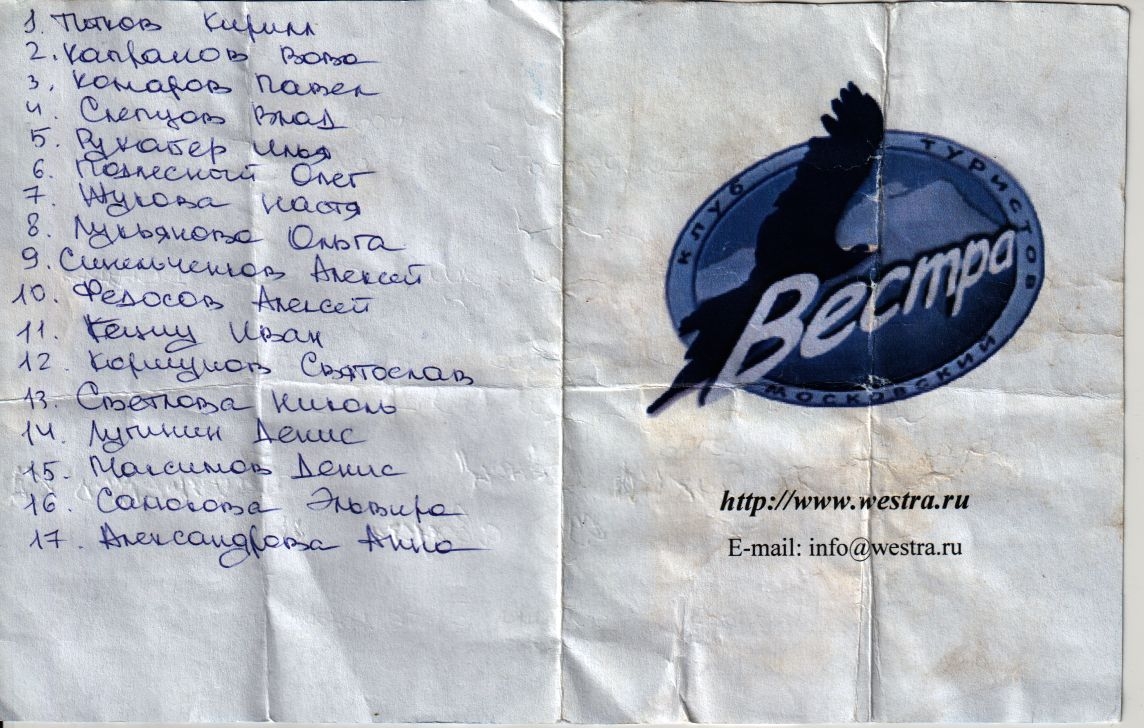 1. Пятков Кирилл
2. Капралов Вова
3. Комаров Павел
4. Слепцов Влад
5. Рукабер Илья
6. Подлесный Олег
7. Жукова Настя
8. Лукьянова Ольга
9. Синельченков Алексей
10. Федосов Алексей
11. Иван
12. Коршунов Святослав
13. Светлова Николь
14. Лугинин Денис
15. Максимов Денис
16. Самохова Эльвира
17. Александрова Анна
КЛУБ ТУРИСТОВ
Вестра
МОСКОВСКИЙ
http://www.westra.ru
E-mail: info@westra.ru